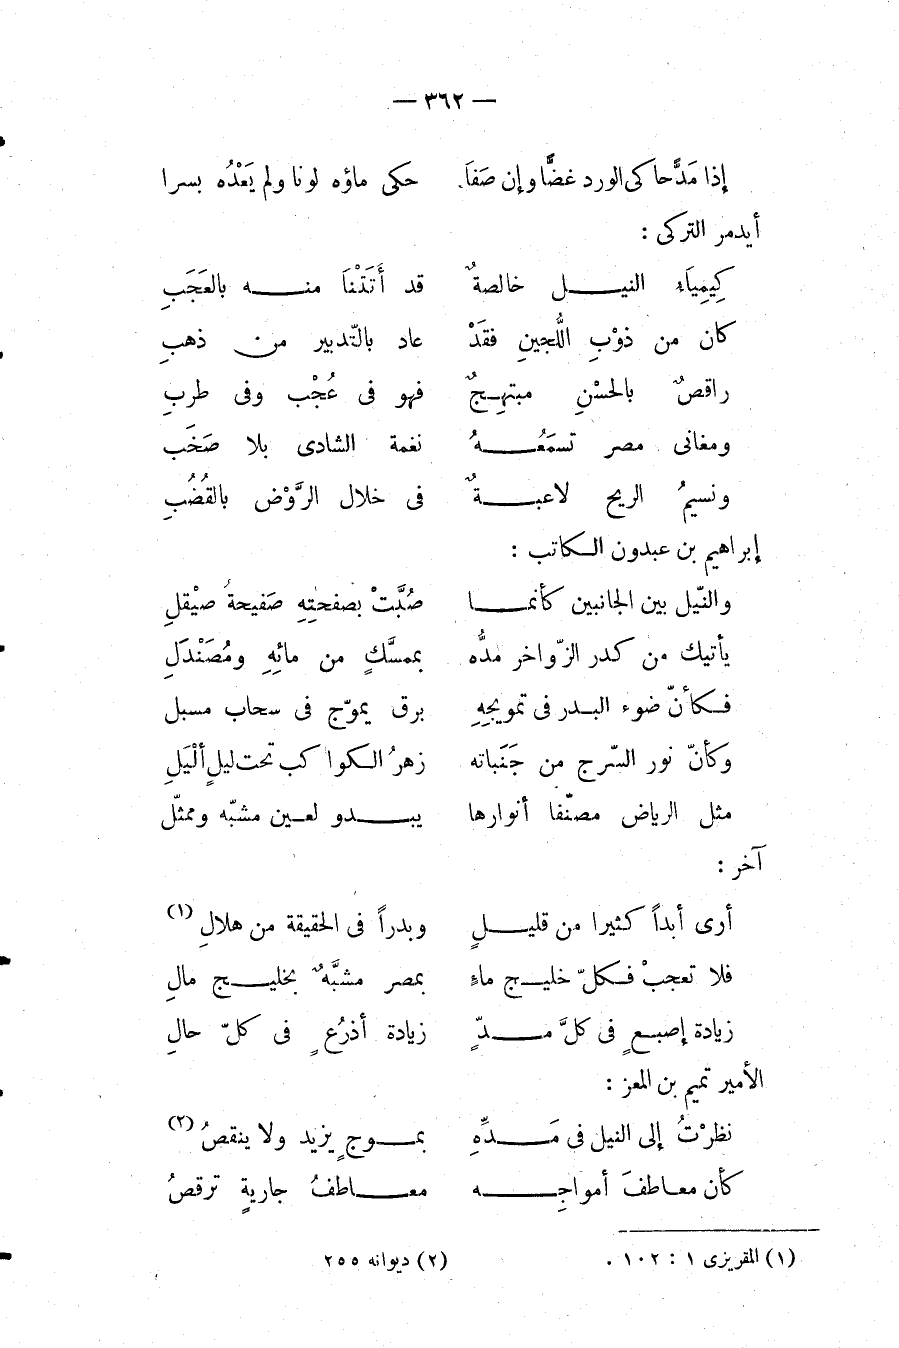 — ٣٦٢ —
إذا مَدَّ حاكى الورد غضًّا وإن صَفاَ حكى ماؤه لونا ولم يَعْدُه بسرا
أيدمر التركى :
كِيمِيَاء النيـــل خالصةٌ قد أَتَتْناَ منــه بالعَجَبِ
كان من ذوْبِ اللُّجينِ فقَدْ عاد بالتّدبير من ذهبِ
راقصٌ بالحسْنِ مبتهِـجٌ فهو فى عُجْب وفى طربِ
ومغانى مصر تسمَعُـــهُ نغمة الشادى بلا صَخَبِ
ونسيمُ الريح لاعبـــةٌ فى خلال الرَّوْض بالقُضُبِ
إبراهيم بن عبدون الكاتب :
والنّيل بين الجانبين كأنمـــا صُبَّتْ بصفحتِهِ صَفيحةُ صيْقلِ
يأتيك من كدر الزّواخر مدُّه بممسَّكٍ من مائِهِ ومُصَنْدَلِ
فـكأنّ ضوء البـدر فى تمويجِهِ برق يموّج فى سحاب مسبل
وكأنّ نور السّرج من جَنَباته زهرُ الـكواكب تحت ليلٍ ألْيَلِ
مثل الرياض مصنّفا أنوارها يبـــدو لعـين مشبّه وممثّل
آخر :
أرى أبداً كثيرا من قليـــلٍ وبدراً فى الحقيقة من هلالِ (١)
فلا تعجبْ فـكلّ خليـج ماءِ بمصر مشبَّهٌ بخليـــج مالِ
زيادة إصبعٍ فى كلَّ مـــدّ زيادة أذرُعٍ فى كلّ حالِ
الأمير تميم بن المعز :
نظرْتُ إلى النيل فى مَـــدِّهِ بمـــوجٍ يزيد ولا ينقصُ (٢)
كأن معـاطفَ أمواجِـــه معـــاطفُ جاريةٍ ترقصُ
(١) المقريزى ١ : ١٠٢ .
(٢) ديوانه ٢٥٥